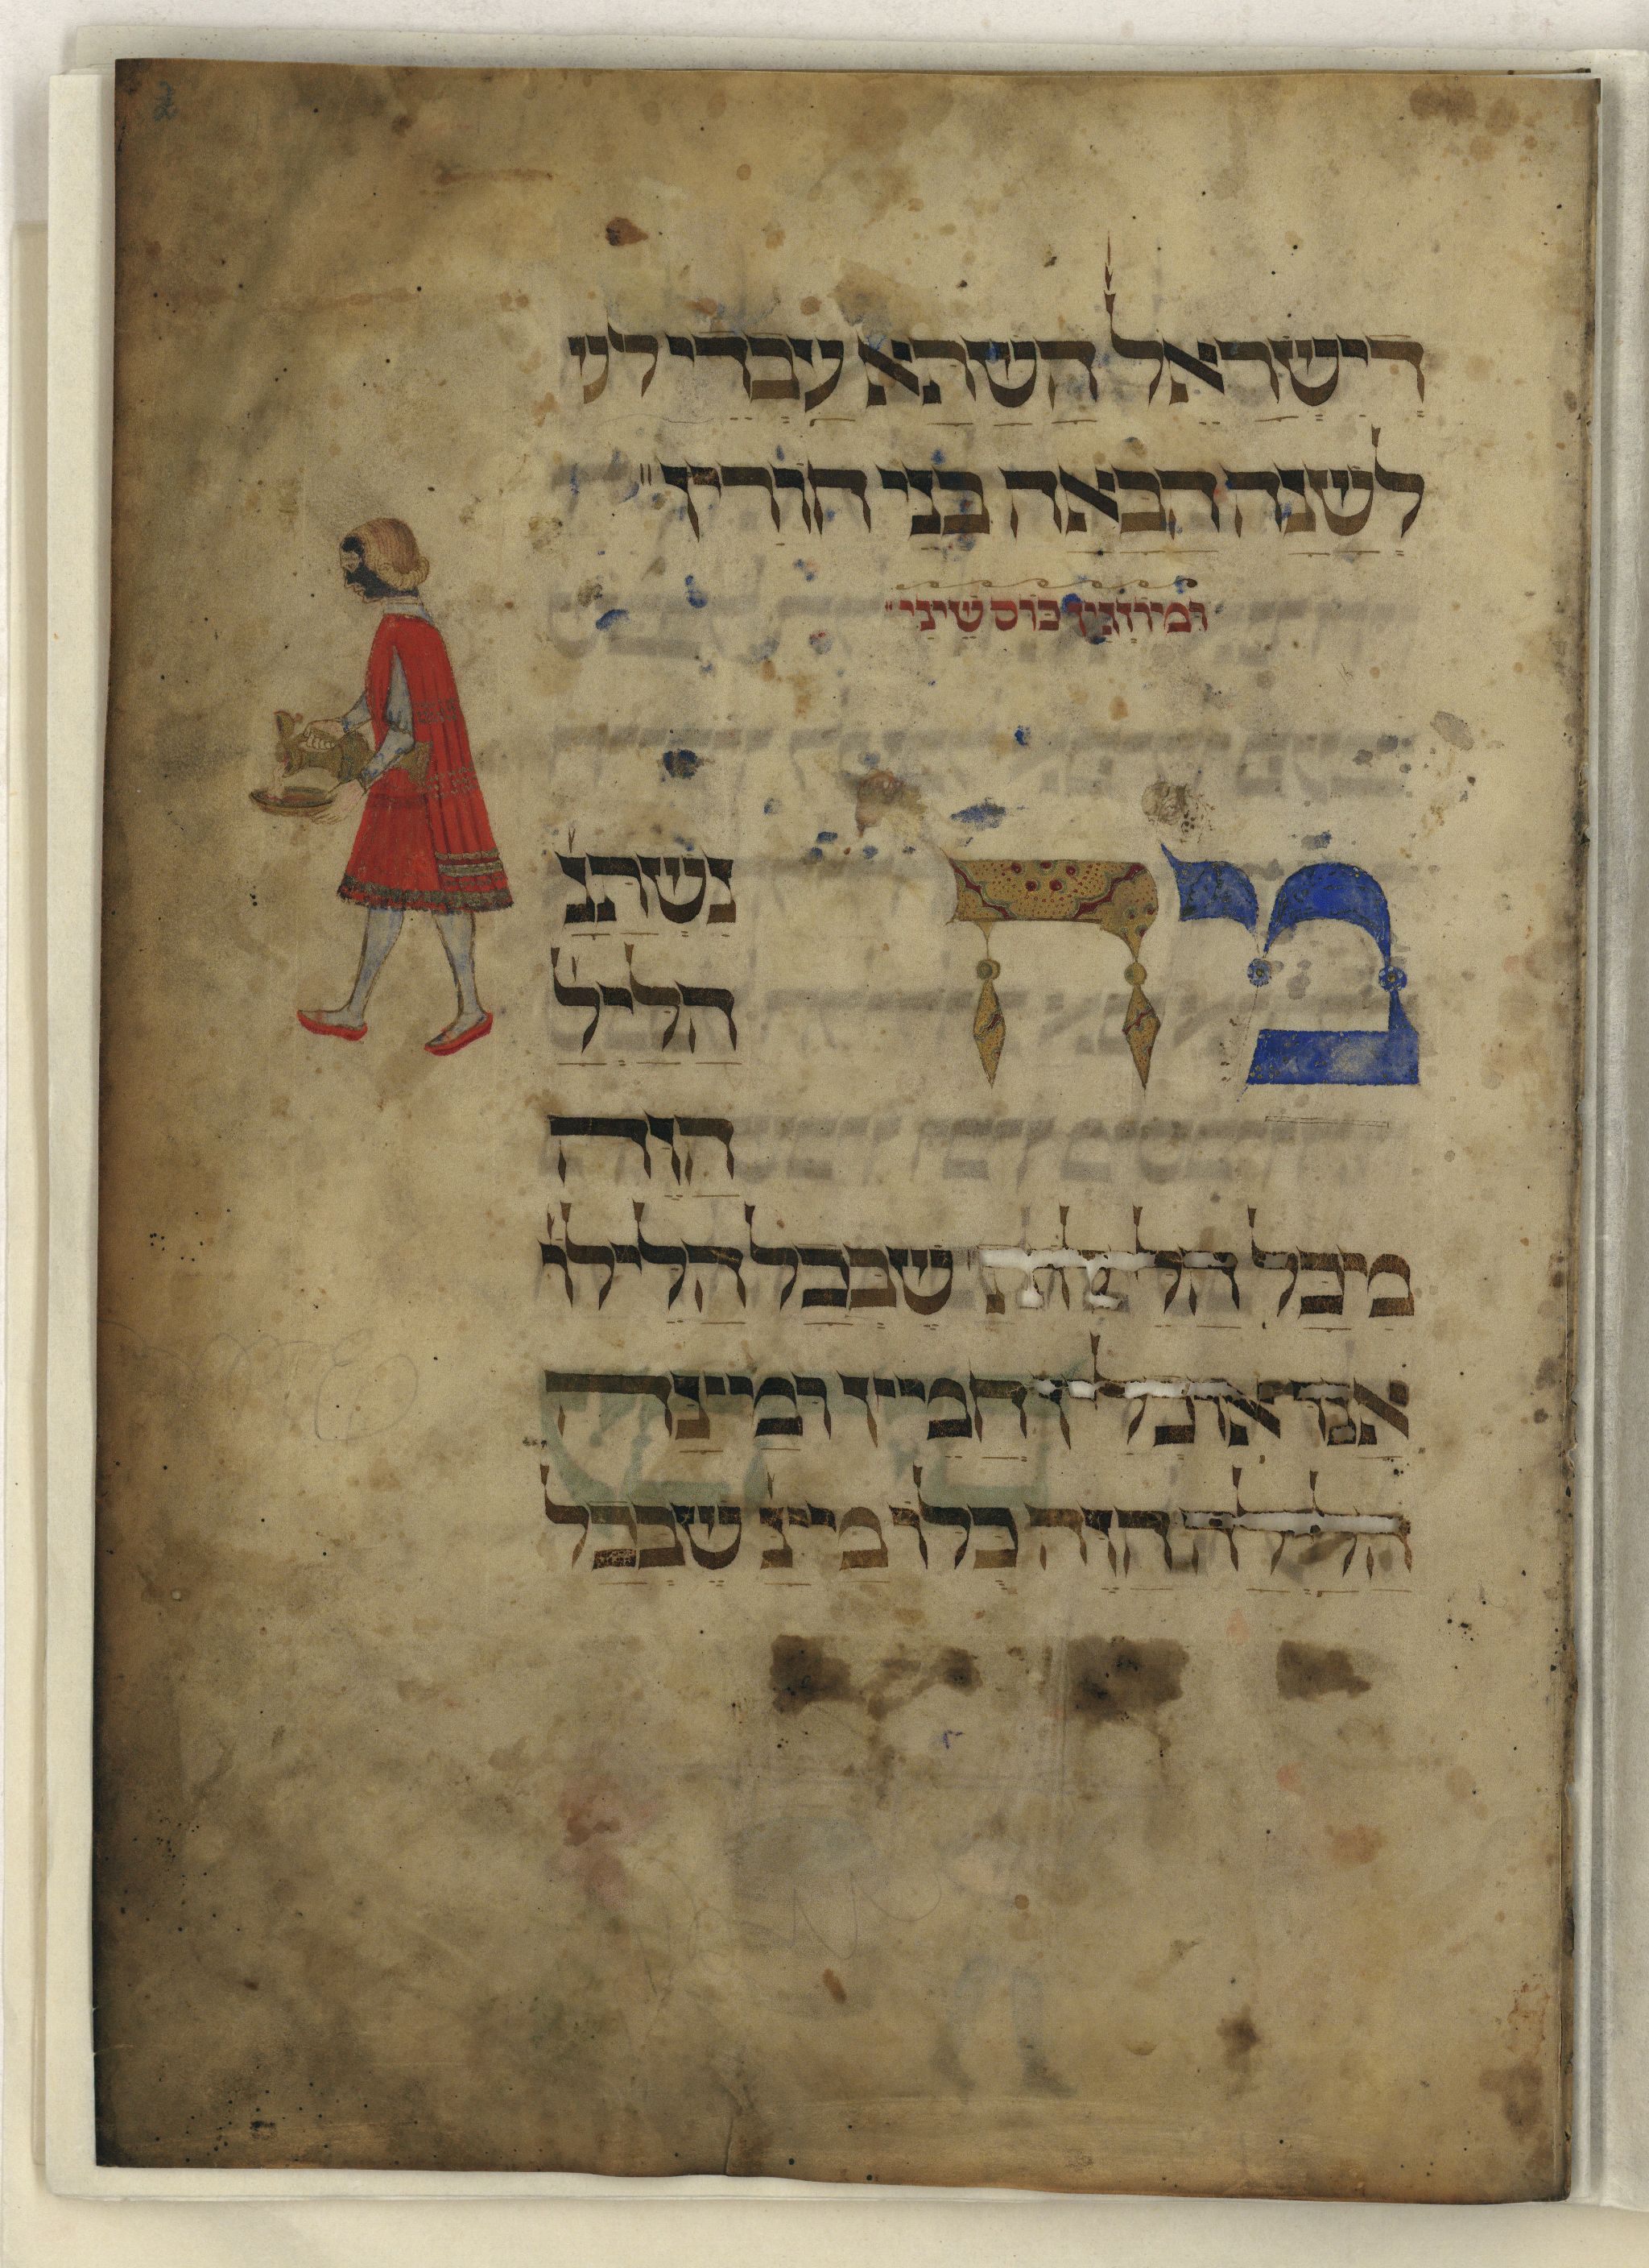 דְיִשְׂרָאֵל הַשַּׁתָּא עַבְדֵי לש
לְשָׁנָה הַבָּאָה בְּנֵי חוֹרִין״
ומוזגין כוס שיני״
מה נשתנ
הליל
הזה
מכל הלילות שבכל הלילו
אנו אוכלין חמץ ומצה
הלילה הזה כלו מצ שבכל